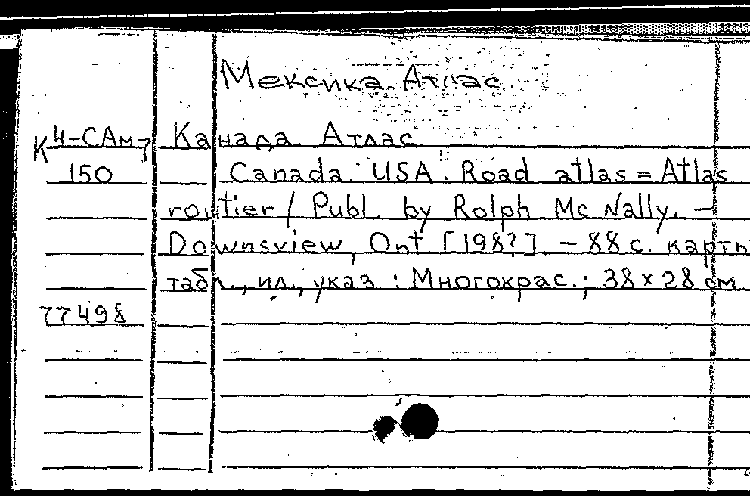 Мексика. Атлас.
К4-САм7 Канада. Атлас
150 Canada. USA: Road atlas = Atlas
routier / Publ. by Rolph Mc Nally. –
Downsview, Ont [198?]. – 88 с. карты
табл., ил., указ : Многокрас.; 38 x 28 см
77498